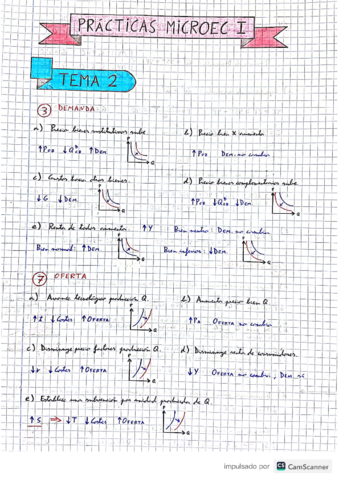 PRÁCTICAS MICROEC I
TEMA 2
③ DEMANDA:
a) Precio bienes sustitutivos sube.
↑PBS ↓QBS ↑DEM
b) Precio bien X aumenta
↑PBX DEM. no cambia
c) Gustos hacia otros bienes.
↓G ↓DEM
d) Precio bienes complementarios sube.
↓DEM.
e) Renta de todos aumenta. ↑Y
Bien neutro: DEM. no cambia
Bien normal: ↑DEM.
Bien inferior: ↓DEM.
⑦ OFERTA
a) Avance tecnológico producción Q.
↓Costes ↑OFERTA
b) Aumenta precio bien Q.
OFERTA no cambia
c) Disminuye precio factores producción Q.
↓r ↓Costes ↑OFERTA
d) Disminuye renta de consumidores.
↓Y OFERTA no cambia, DEM. sí
e) Establece una subvención por unidad producida de Q.
↑S ⇒ ↓T ↓Costes ↑OFERTA
impulsado por CS CamScanner